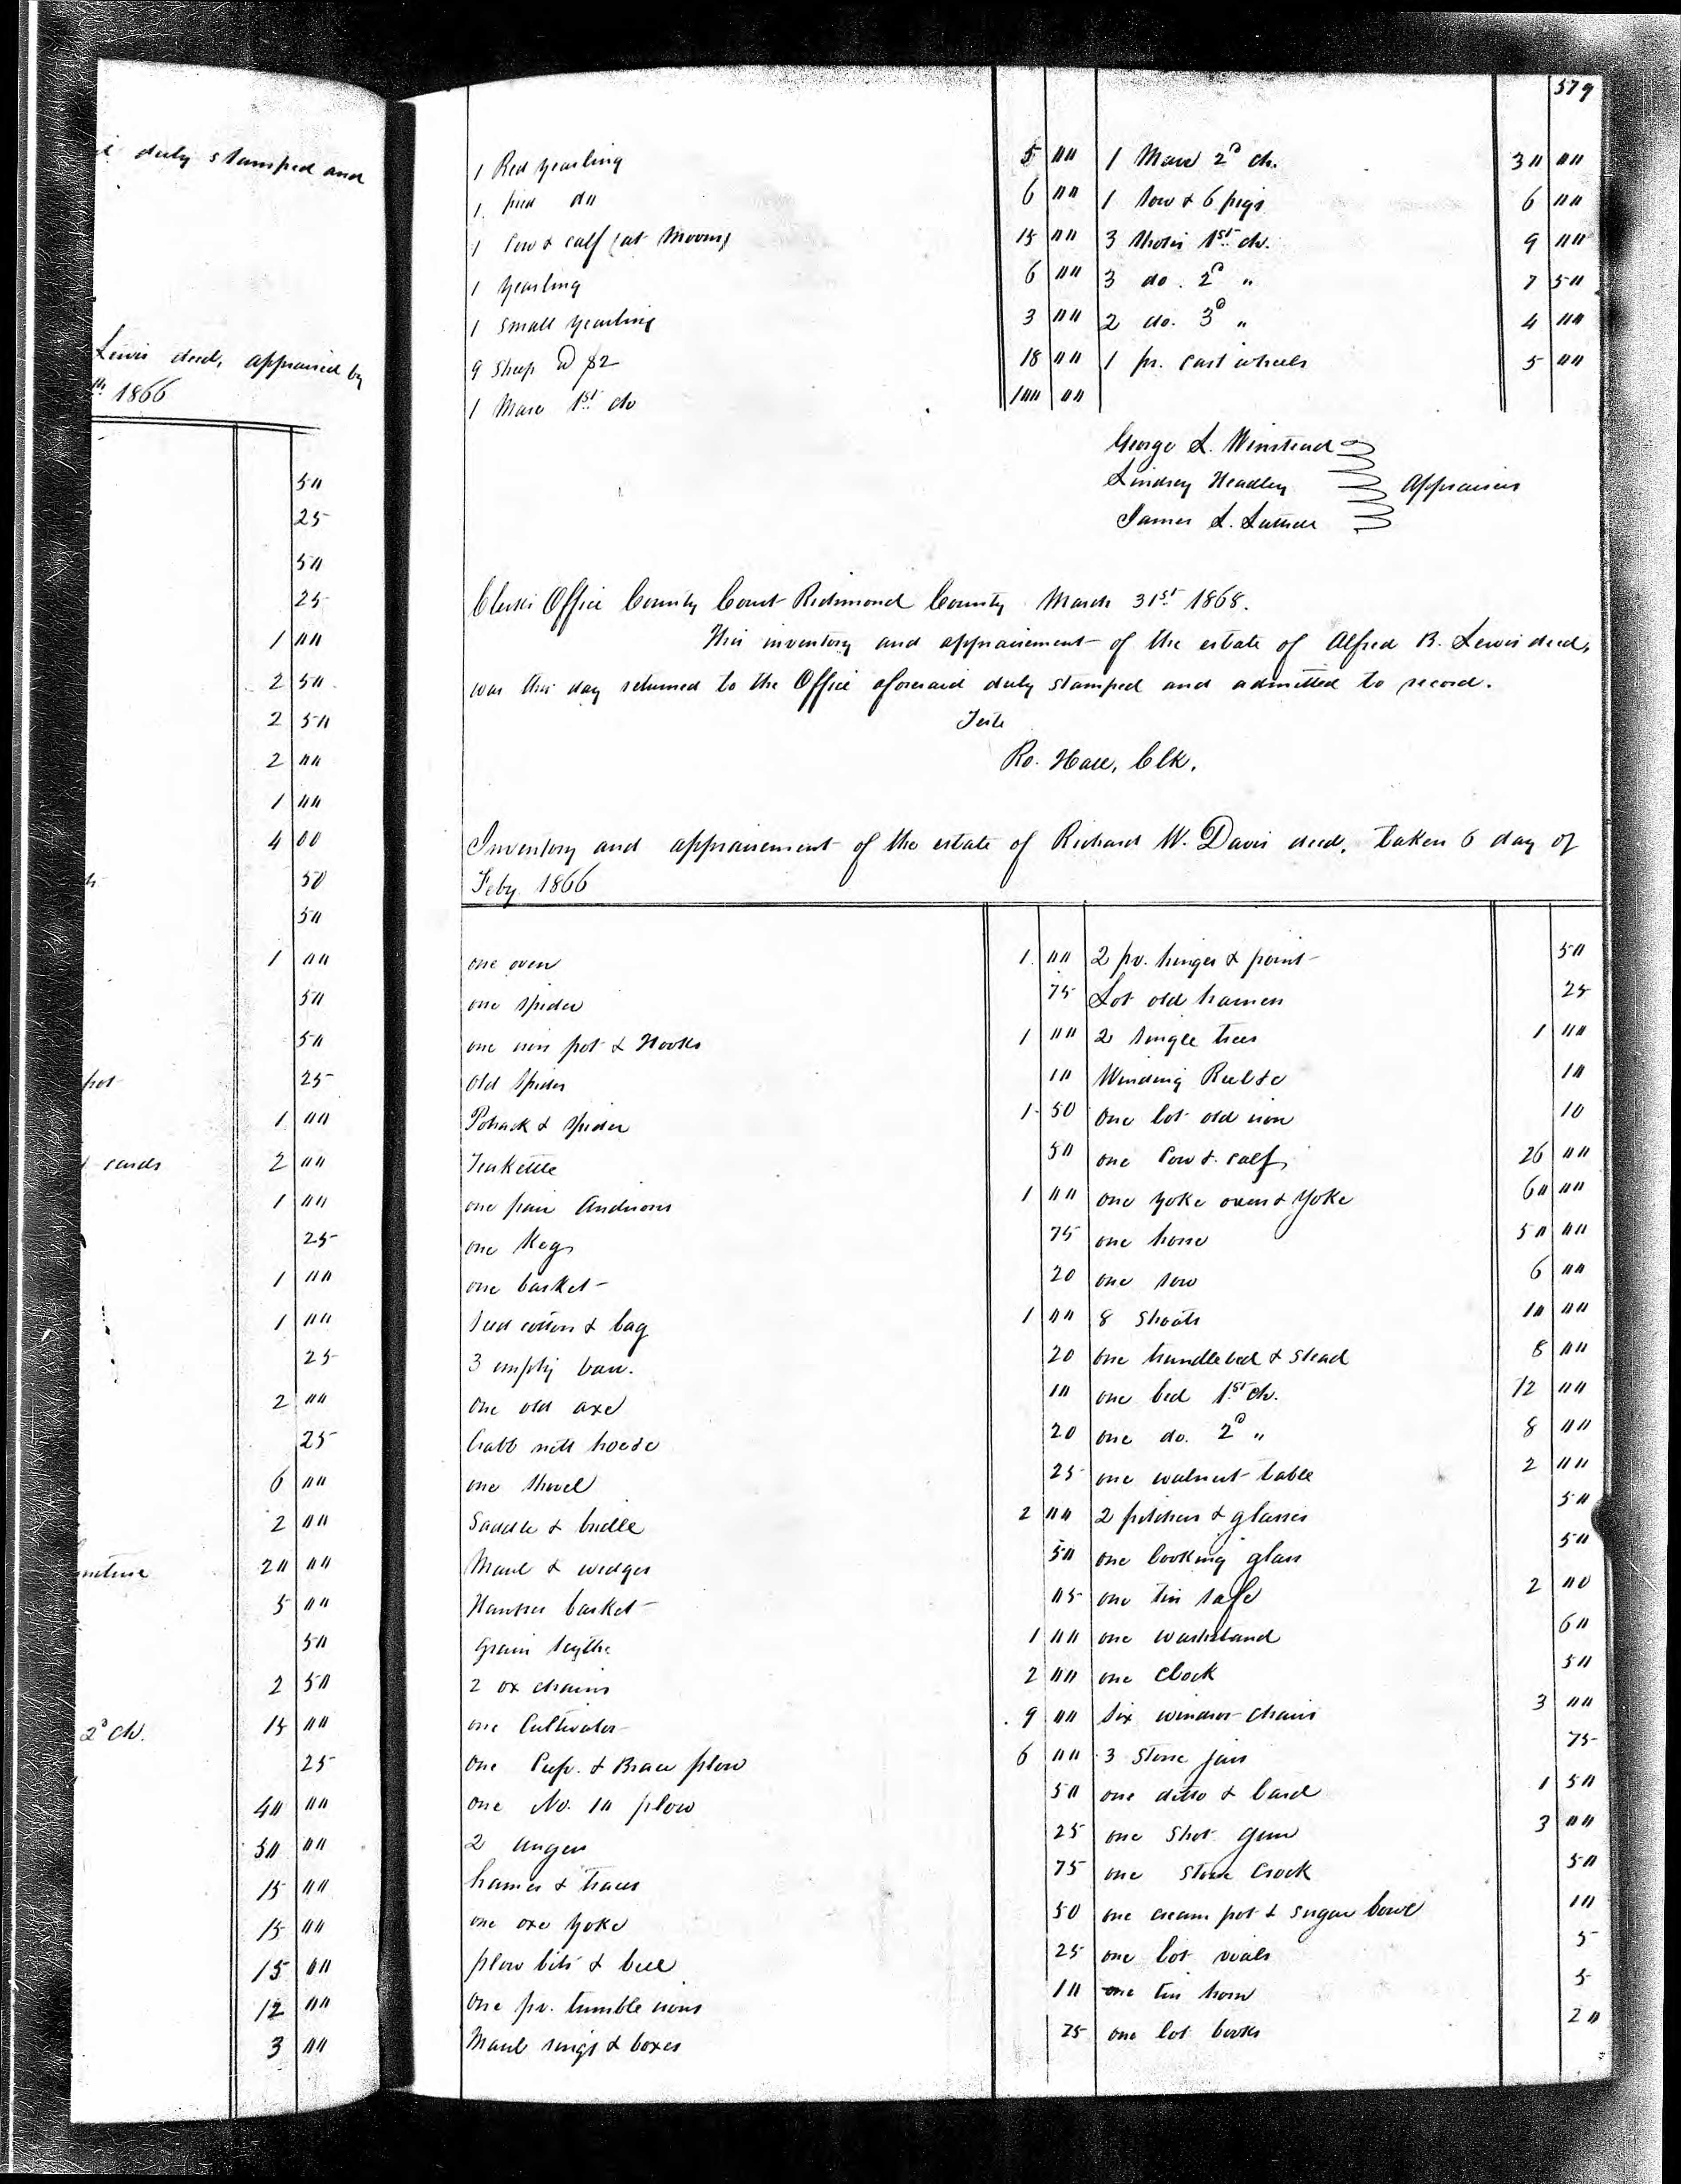 579
d duly stamped and
Lewis decd, appraised by
th 1866
50
25
50
25
1 00
2 50
2 50
2 00
1 00
4 00
50
50
1 00
50
50
pot 25
1 00
cards 2 00
1 00
25
1 00
1 00
25
2 00
25
6 00
2 00
niture 20 00
5 00
50
2 50
2d ch. 15 00
25
40 00
50 00
15 00
15 00
15 00
12 00
3 00
1 Red yearling 5 00 1 Mare 2d ch. 30 00
1 pied do 6 00 1 Sow & 6 pigs 6 00
1 Cow & calf (at Moores) 15 00 3 Shotes 1st ch. 9 00
1 yearling 6 00 3 do. 2d " 7 50
1 small yearling 3 00 2 do. 3d " 4 00
9 Sheep @ $2 18 00 1 pr. Cart wheels 5 00
1 Mare 1st ch 100 00
George L. Winstead
Lindsey Headley Appraisers
James L.
Clerks Office County Court Richmond County March 31st 1868.
This inventory and appraisement of the estate of Alfred B. Lewis decd,
was this day returned to the Office aforesaid duly stamped and admitted to record.
Teste
Ro. Hall, Clk.
Inventory and appraisement of the estate of Richard W. Davis decd. taken 6 day of
Feby 1866
one oven 1 00 2 pr. hinges & point 50
one spider 75 Lot old harness 25
one iron pot & Hooks 1 00 2 Single trees 1 00
Old Spider 10 Winding Reel &c 10
Potrack & Spider 1 50 One lot old iron 10
Teakettle 50 one Cow & calf 26 00
one pair Andirons 1 00 one yoke oxen & yoke 60 00
one Keg 75 one horse 50 00
one basket 20 one sow 6 00
Seed cotton & bag 1 00 8 Shoats 10 00
3 empty barr. 20 One trundle bed & Stead 8 00
One old axe 10 one bed 1st ch. 12 00
Crabb nett hoe &c 20 one do. 2d " 8 00
one Shovel 25 one walnut table 2 00
Saddle & bridle 2 00 2 pitchers & glasses 50
Maul & wedges 50 one looking glass 50
basket 05 one tin safe 2 00
Grain Scythe 1 00 one washstand 60
2 ox chains 2 00 one Clock 50
one Cultivator 9 00 Six windsor chairs 3 00
One & Brace plow 6 00 3 Stone jars 75
one No. 10 plow 50 one ditto & lard 1 50
2 augers 25 one Shot gun 3 00
hames & traces 75 one Stone Crock 50
one oxe yoke 50 one cream pot & sugar bowl 10
plow bits & bell 25 one lot vials 5
One pr. tumble irons 10 one tin horn 5
Maul rings & boxes 25 one lot books 20